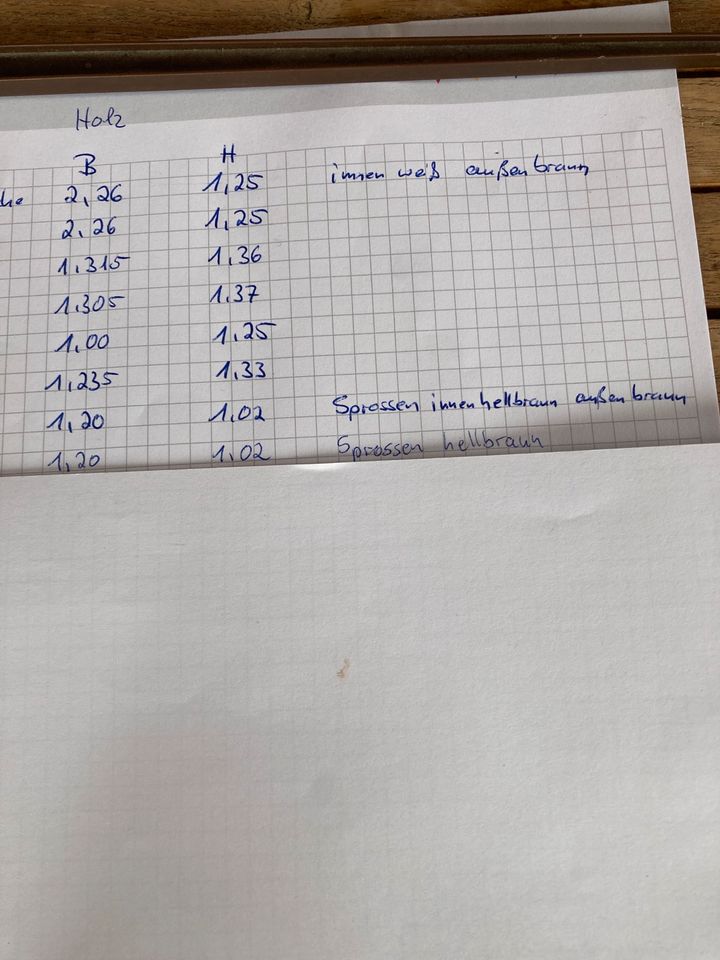 Holz
B H
2,26 1,25 innen weiß außen braun
2,26 1,25
1,315 1,36
1,305 1,37
1,00 1,25
1,235 1,33
1,20 1,02 Sprossen innen hellbraun außen braun
1,20 1,02 Sprossen hellbraun